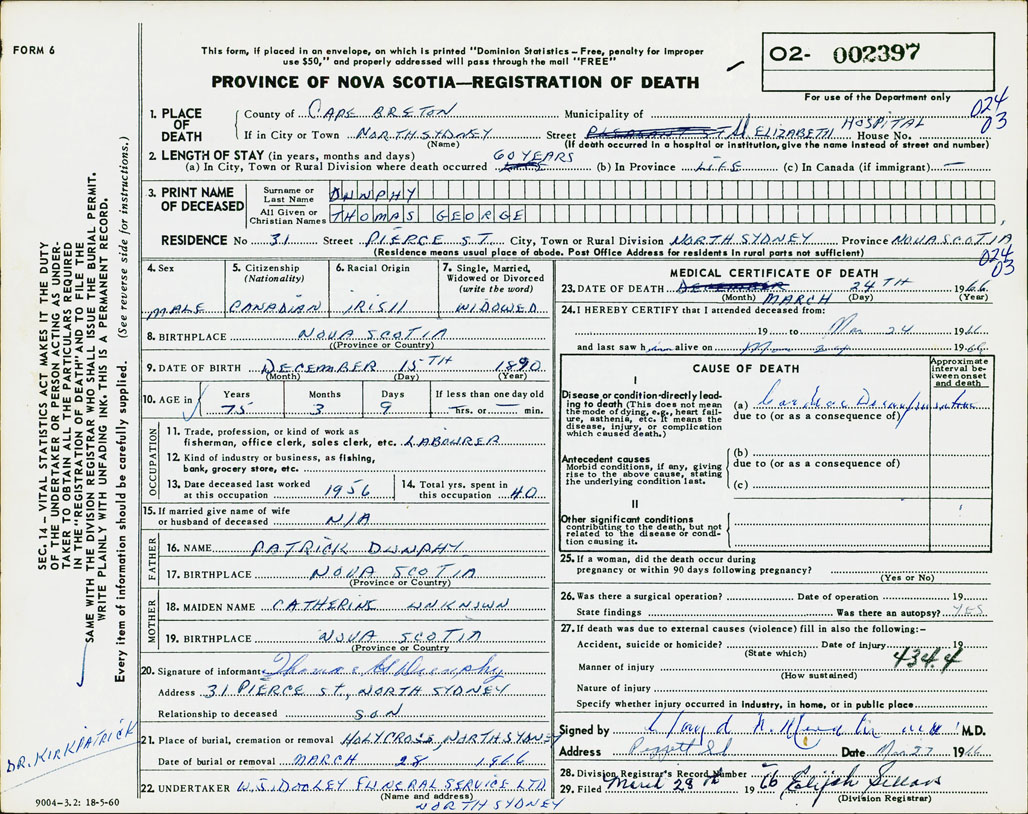 FORM 6
This form, if placed in an envelope, on which is printed "Dominion Statistics – Free, penalty for improper
use $50," and properly addressed will pass through the mail "FREE"
PROVINCE OF NOVA SCOTIA—REGISTRATION OF DEATH
02- 002397
For use of the Department only
024
03
1. PLACE OF DEATH
County of CAPE BRETON Municipality of
If in City or Town NORTH SYDNEY Street St ELIZABETH HOSPITAL House No.
(Name) (If death occurred in a hospital or institution, give the name instead of street and number)
2. LENGTH OF STAY (in years, months and days)
(a) In City, Town or Rural Division where death occurred 60 YEARS (b) In Province LIFE (c) In Canada (if immigrant) —
3. PRINT NAME OF DECEASED
Surname or Last Name DUNPHY
All Given or Christian Names THOMAS GEORGE
RESIDENCE No 31 Street PIERCE ST. City, Town or Rural Division NORTH SYDNEY Province NOVA SCOTIA
(Residence means usual place of abode. Post Office Address for residents in rural parts not sufficient)
024
03
4. Sex MALE
5. Citizenship (Nationality) CANADIAN
6. Racial Origin IRISH
7. Single, Married, Widowed or Divorced (write the word) WIDOWED
8. BIRTHPLACE NOVA SCOTIA
(Province or Country)
9. DATE OF BIRTH DECEMBER 15TH 1890
(Month) (Day) (Year)
10. AGE in Years 75 Months 3 Days 9 If less than one day old — hrs. or — min.
OCCUPATION
11. Trade, profession, or kind of work as
fisherman, office clerk, sales clerk, etc. LABOURER
12. Kind of industry or business, as fishing,
bank, grocery store, etc.
13. Date deceased last worked at this occupation 1956
14. Total yrs. spent in this occupation 40
15. If married give name of wife
or husband of deceased N/A
FATHER
16. NAME PATRICK DUNPHY
17. BIRTHPLACE NOVA SCOTIA
(Province or Country)
MOTHER
18. MAIDEN NAME CATHERINE UNKNOWN
19. BIRTHPLACE NOVA SCOTIA
(Province or Country)
20. Signature of informant Thomas G Dunphy
Address 31 PIERCE St, NORTH SYDNEY
Relationship to deceased SON
21. Place of burial, cremation or removal HOLY CROSS, NORTH SYDNEY
Date of burial or removal MARCH 28 1966
22. UNDERTAKER W.J. DOOLEY FUNERAL SERVICE LTD
(Name and address)
NORTH SYDNEY
MEDICAL CERTIFICATE OF DEATH
23. DATE OF DEATH MARCH 24TH 1966
(Month) (Day) (Year)
24. I HEREBY CERTIFY that I attended deceased from:
19 to Mar 24 1966
and last saw him alive on 1966
CAUSE OF DEATH
Approximate interval between onset and death
I
Disease or condition directly leading to death (This does not mean
the mode of dying, e.g., heart failure, asthenia, etc. It means the
disease, injury, or complication which caused death.)
(a) Cardiac Decompensation
due to (or as a consequence of)
Antecedent causes
Morbid conditions, if any, giving rise to the above cause, stating the underlying condition last.
(b)
due to (or as a consequence of)
(c)
II
Other significant conditions
contributing to the death, but not related to the disease or condition causing it.
25. If a woman, did the death occur during
pregnancy or within 90 days following pregnancy?
(Yes or No)
26. Was there a surgical operation? Date of operation 19
State findings Was there an autopsy? YES
27. If death was due to external causes (violence) fill in also the following:–
Accident, suicide or homicide? Date of injury 19
(State which)
434.4
Manner of injury
(How sustained)
Nature of injury
Specify whether injury occurred in industry, in home, or in public place
Signed by M.D.
Address Date Mar 27 1966
28. Division Registrar's Record Number
29. Filed March 28th 1966 Elijah
(Division Registrar)
SEC. 14 – VITAL STATISTICS ACT MAKES IT THE DUTY
OF THE UNDERTAKER OR PERSON ACTING AS UNDERTAKER
TO OBTAIN ALL THE PARTICULARS REQUIRED
IN THE "REGISTRATION OF DEATH" AND TO FILE THE
SAME WITH THE DIVISION REGISTRAR WHO SHALL ISSUE THE BURIAL PERMIT.
WRITE PLAINLY WITH UNFADING INK. THIS IS A PERMANENT RECORD.
Every item of information should be carefully supplied. (See reverse side for instructions.)
DR. KIRKPATRICK
9004-3.2: 18-5-60